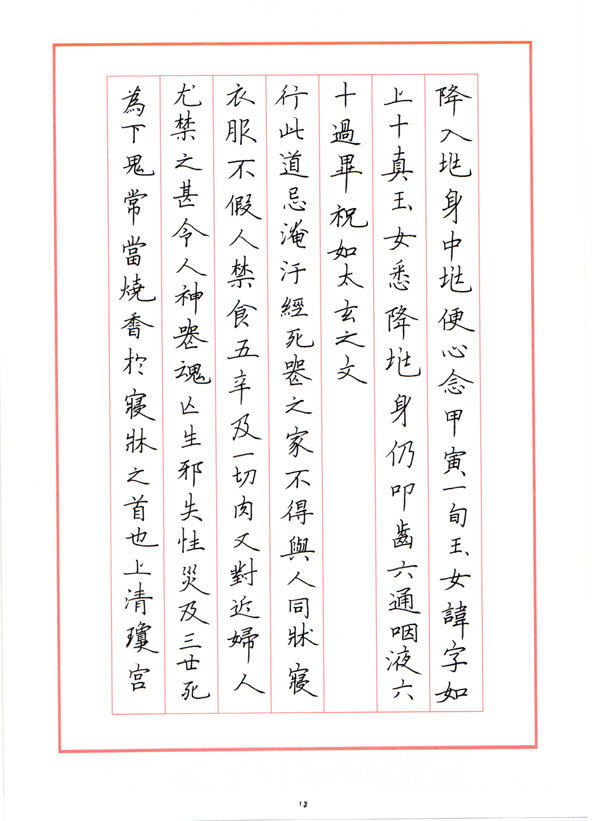 降入兆身中兆便心念甲寅一旬玉女諱字如
上十真玉女悉降兆身仍叩齒六通咽液六
十過畢祝如太玄之文
行此道忌淹汙經死喪之家不得與人同牀寢
衣服不假人禁食五辛及一切肉又對近婦人
尤禁之甚令人神喪魂亡生邪失性災及三世死
為下鬼常當燒香於寢牀之首也上清瓊宮
13